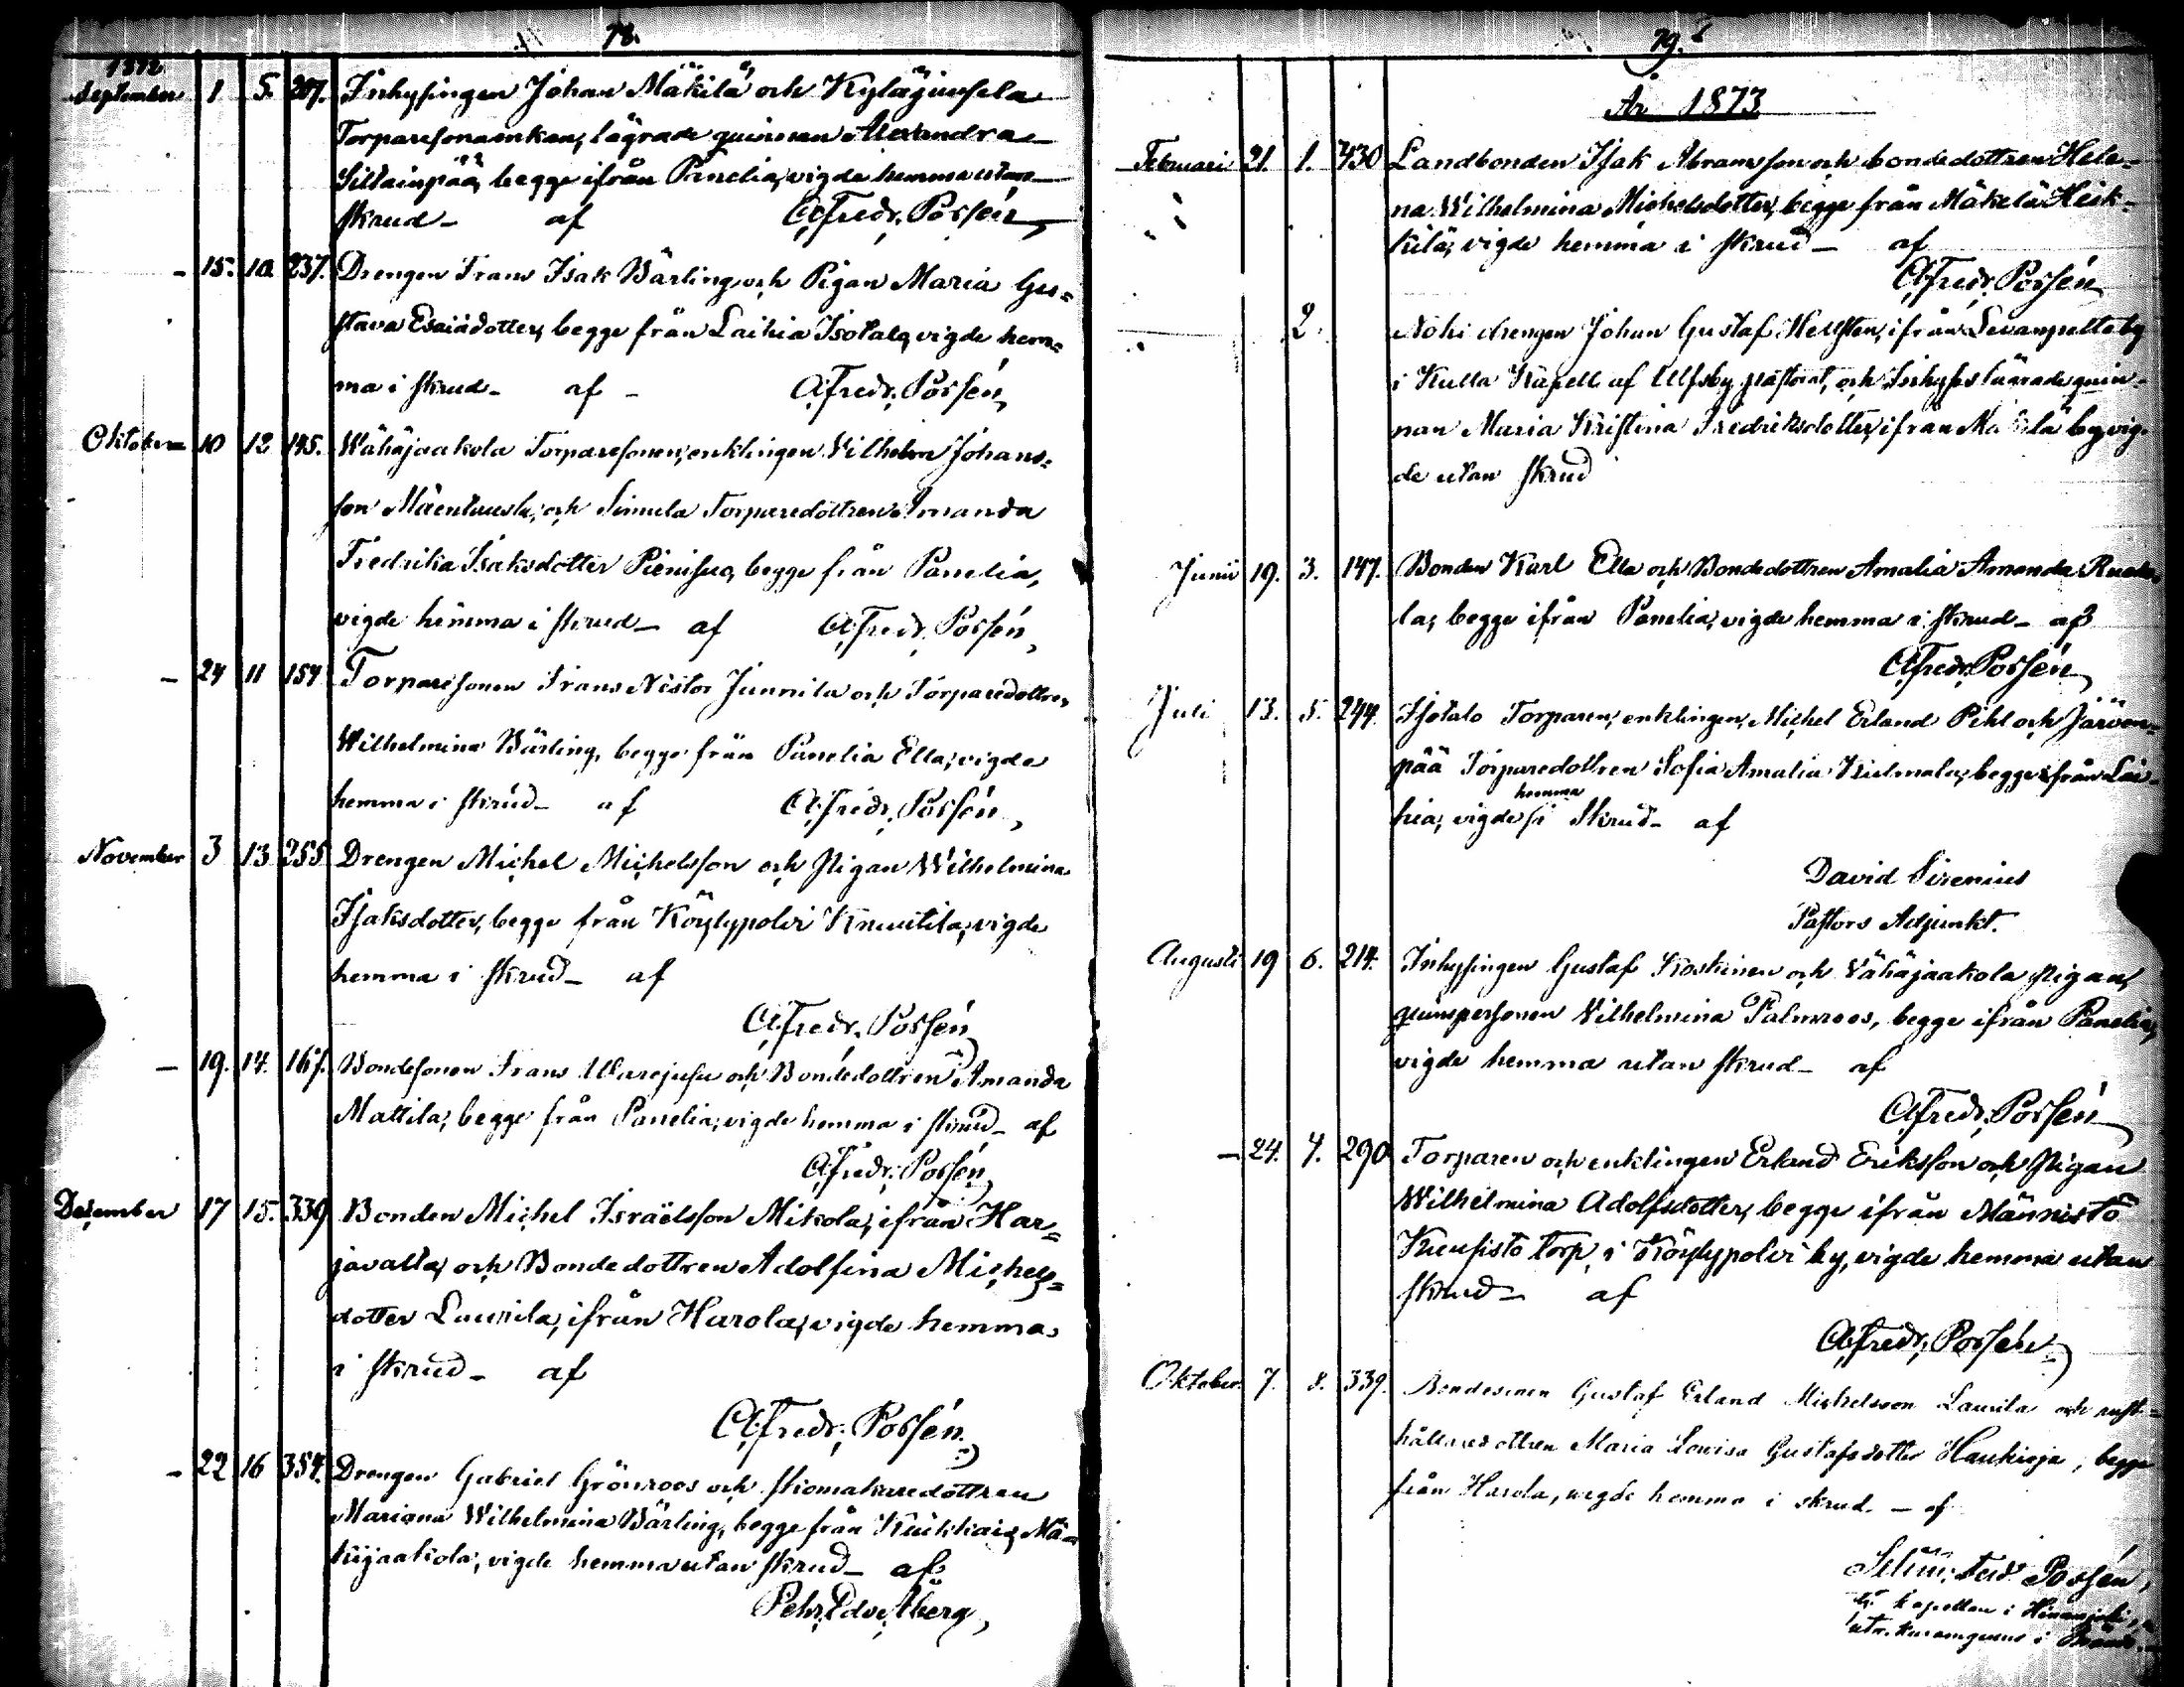 78.
1872
September 1 5. 207. Inhysingen Johan Mäkilä och Kyläjunsela
Torparesonaenkan, lägrade quinnan Alexandra
Siltainpää, begge ifrån Panelia, vigde hemma utan
skrud_ af A. Fredr. Possén
- 15. 10. 237. Drengen Frans Isak Bärling och Pigan Maria Gu=
stava Esaiadotter, begge från Laihia Isotalo, vigde hem=
ma i skrud_ af - A. Fredr. Possén
Oktober 10 12 145. Wähäjaakola Torparesonen, enklingen Vilhelm Johans=
son Mäentausta, och Simula Torparedottren Amanda
Fredrika Isaksdotter Pienisuo, begge från Panelia,
vigde hemma i skrud_ af A. Fredr. Possén
- 24 11 154 Torparesonen Frans Nestor Junnila och Torparedottren
Wilhelmina Bärling, begge från Panelia Ella, vigde
hemma i skrud_ af A. Fredr. Possén
November 3 13 255 Drengen Michel Michelsson och Pigan Wilhelmina
Isaksdotter, begge från Köylypolvi Knuutila, vigde
hemma i skrud_ af
A. Fredr. Possén
- 19. 14. 167. Bondesonen Frans och Bondedottren Amanda
Mattila, begge från Panelia, vigde hemma i skrud_ af
A. Fredr. Possén
December 17 15. 339 Bonden Michel Israëlsson Mikola, ifrån Har=
javalta, och Bondedottren Adolfina Michels=
dotter Laurila, ifrån Harola, vigde hemma
i skrud_ af
A. Fredr. Possén
- 22 16 354. Drengen Gabriel Grönroos och skomakaredottren
Mariana Wilhelmina Bärling, begge från Kiukkais, Mä=
kijaakola, vigde hemma utan skrud_ af
Pehr Edv. Åberg
79.
År 1873
Februari 21. 1. 430 Landbonden Isak Abramsson och bondedottren Hele=
na Wilhelmina Michelsdotter, begge från Mäkelä Heik=
kilä, vigde hemma i skrud_ af
A. Fredr. Possén
2. drengen Johan Gustaf Hellsten, ifrån Levanpelto by
i Kulla Kapell af Ulfsby pastorat, och Inhyses lägrade quin=
nan Maria Kristina Fredriksdotter, ifrån by, vig=
de utan skrud
Junii 19. 3. 147. Bonden Karl Ella och Bondedottren Amalia Amanda
la, begge ifrån Panelia, vigde hemma i skrud_ af
A. Fredr. Possén
Juli 13. 5. 244. Isotalo Torparen, enklingen, Michel Erland Pihl och Järven=
pää Torparedottren Sofia Amalia Kulmala, begge ifrån Lai=
hia, vigde hemma i skrud_ af
David Sirenius
Pastors Adjunkt.
Augusti 19 6. 214. Inhysingen Gustaf Koskinen och Vähäjaakola pigan,
quinspersonen Vilhelmina Palmroos, begge ifrån Panelia,
vigde hemma utan skrud_ af
A. Fredr. Possén
- 24. 7. 290 Torparen och enklingen Erland Eriksson och Pigan
Wilhelmina Adolfsdotter, begge ifrån Männistö
Kuusisto torp, i Köylypolvi by, vigde hemma utan
skrud_ af
A. Fredr. Possén
Oktober 7. 8. 339. Bondesonen Gustaf Erland Michelsson Laurila och rust=
hållaredottren Maria Lovisa Gustafsdotter Haukioja, begge
från Harola, wigde hemma i skrud. - af
Possén,
kapellan i
i